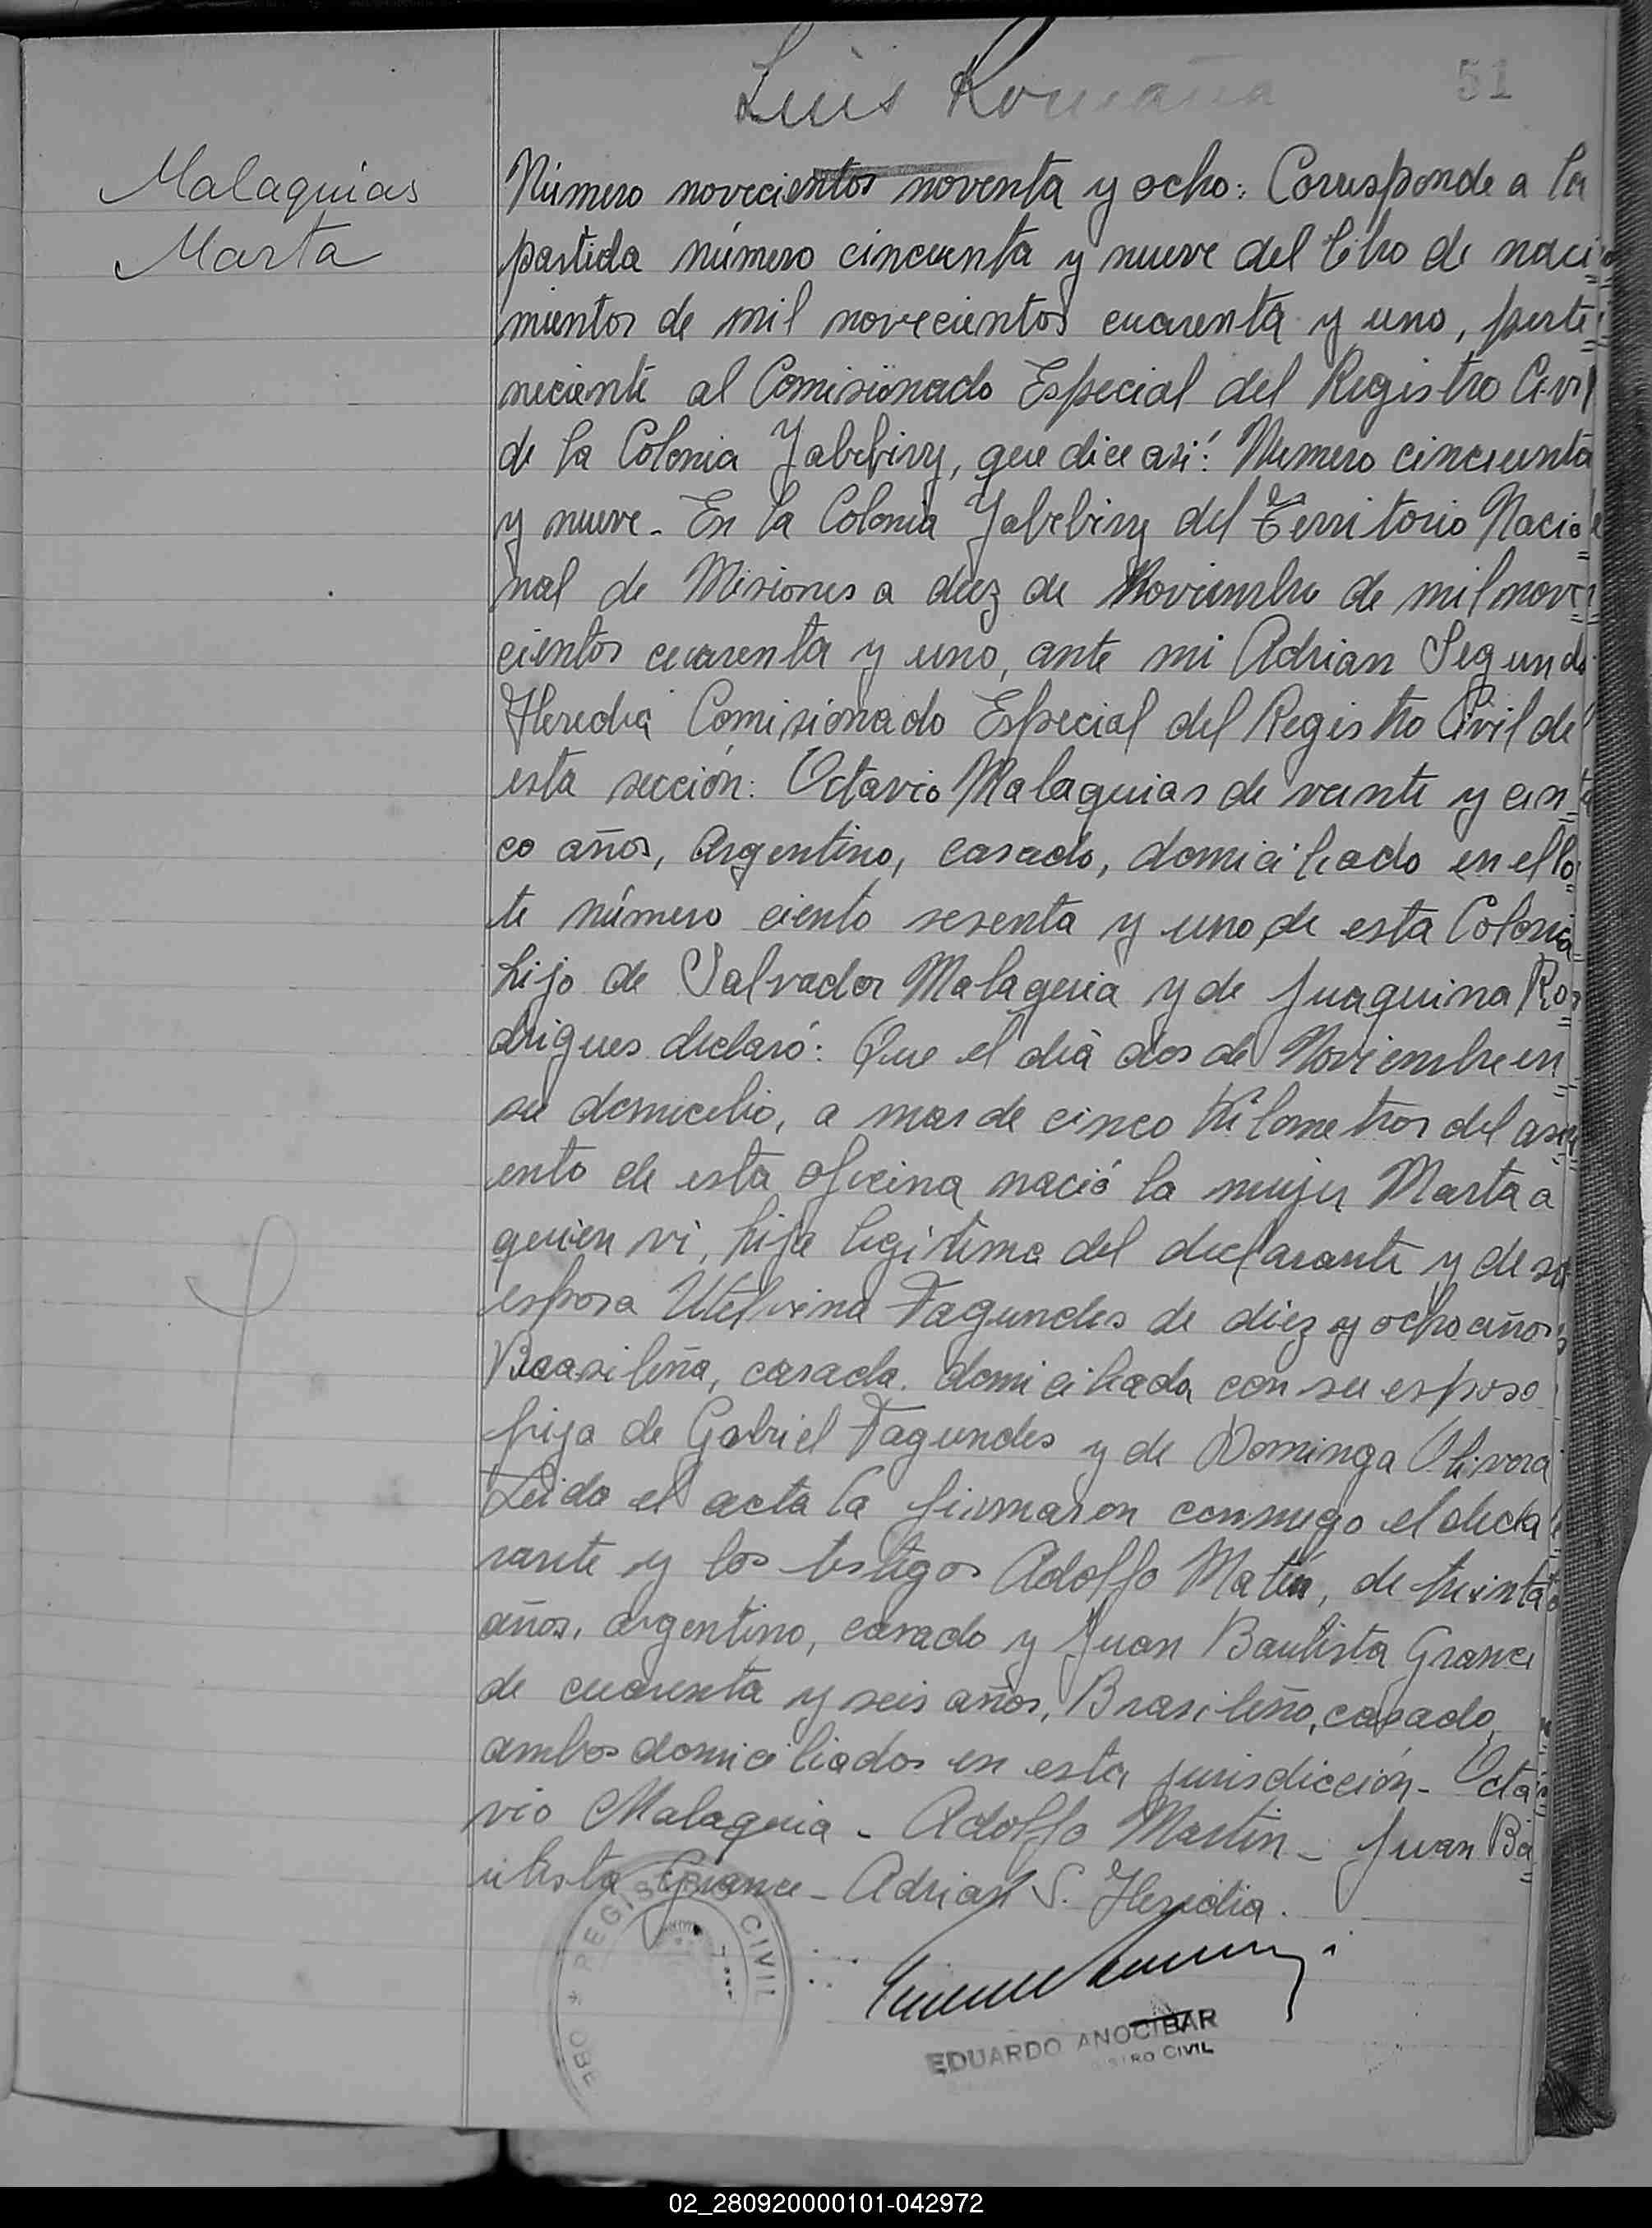 Luis Romaña
51
Malaquias
Marta
Número novecientos noventa y ocho: Corresponde a la
partida número cincuenta y nueve del libro de naci
mientos de mil novecientos cuarenta y uno, perte
neciente al Comisionado Especial del Registro Civil
de la Colonia Yabebiry, que dice asi: Numero cincuenta
y nueve - En la Colonia Yabebiry del Territorio Nacio
nal de Misiones a diez de Noviembre de mil nove
cientos cuarenta y uno, ante mi Adrian Segundo
Heredia Comisionado Especial del Registro Civil de
esta sección: Octavio Malaquias de veinte y cin
co años, argentino, casado, domiciliado en el lo
te número ciento sesenta y uno de esta Colonia
hijo de Salvador Malaquia y de Juaquina Ro
drigues declaró: Que el dia dos de Noviembre en
su domicilio, a mas de cinco Kilometros del asi
ento de esta oficina nació la mujer Marta a
quien vi, hija legitima del declarante y de su
esposa Utelvina Fagundes de diez y ocho años
Braasileña, casada. domiciliada con su esposo
hija de Gabriel Fagundes y de Dominga Olivera
Leida el acta la firmaron conmigo el decla
rante y los testigos Adolfo Matin, de treinta
años, argentino, casado y Juan Bautista Grance
de cuarenta y seis años, Brasileño, casado,
ambos domiciliados en esta jurisdicción - Octa
vio Malaquia - Adolfo Martin - Juan Ba
utista Grance - Adrian S. Heredia.
REGISTRO CIVIL
EDUARDO ANOCIBAR
CIVIL
02_280920000101-042972